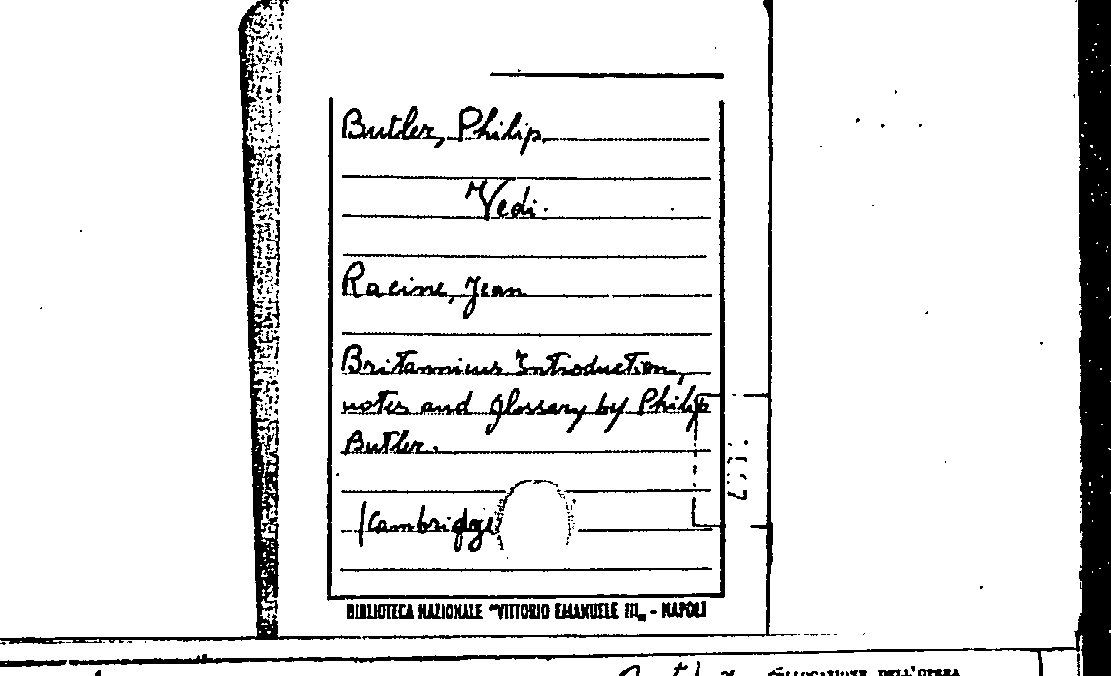 Butler, Philip
Vedi.
Racine, Jean
Britannicus Introduction,
notes and glossary by Philip
Butler.
(Cambridge
BIBLIOTECA NAZIONALE "VITTORIO EMANUELE III„ - NAPOLI
COLLOCAZIONE DELL'OPERA